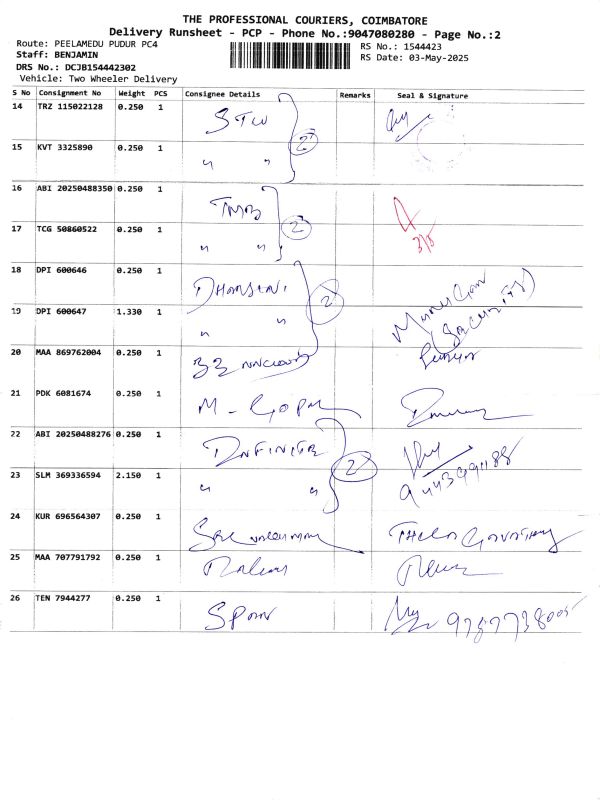 THE PROFESSIONAL COURIERS, COIMBATORE
Delivery Runsheet - PCP - Phone No.:9047080280 - Page No.:2
Route: PEELAMEDU PUDUR PC4
RS No.: 1544423
Staff: BENJAMIN
RS Date: 03-May-2025
DRS No.: DCJB154442302
Vehicle: Two Wheeler Delivery
S No Consignment No Weight PCS Consignee Details Remarks Seal & Signature
14 TRZ 115022128 0.250 1 STW
2
15 KVT 3325890 0.250 1 " "
16 ABI 20250488350 0.250 1 TMB
2
17 TCG 50860522 0.250 1 " " 3/5
18 DPI 600646 0.250 1
2
19 DPI 600647 1.330 1 " "
20 MAA 869762004 0.250 1
21 PDK 6081674 0.250 1 M - Gopal
22 ABI 20250488276 0.250 1 INFINITE
2
23 SLM 369336594 2.150 1 " "
24 KUR 696564307 0.250 1
25 MAA 707791792 0.250 1
26 TEN 7944277 0.250 1